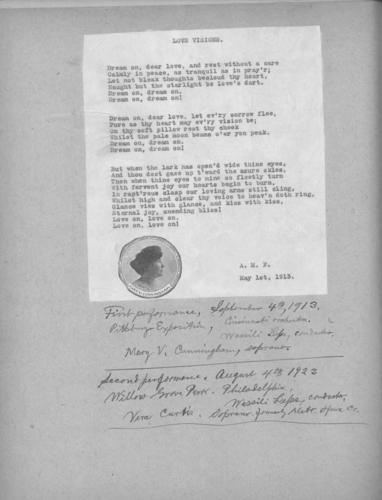 LOVE VISIONS.
Dream on, dear love, and rest without a care
Calmly in peace, as tranquil as in pray'r;
Let not bleak thoughts becloud thy heart,
Naught but the starlight be love's dart.
Dream on, dream on.
Dream on, dream on!
Dream on, dear love, let ev'ry sorrow flee,
Pure as thy heart may ev'ry vision be;
On thy soft pillow rest thy cheek
Whilst the pale moon beams o'er yon peak.
Dream on, dream on.
Dream on, dream on!
But when the lark has open'd wide thine eyes,
And thou dost gaze up t'ward the azure skies,
Then when thine eyes to mine so fleetly turn
With fervent joy our hearts begin to burn,
In rapt'rous clasp our loving arms still cling,
Whilst high and clear thy voice to heav'n doth ring,
Glance view with glance, and kiss with kiss,
Eternal joy, unending bliss!
Love on, love on.
Love on, love on!
A. M. F.
May 1st, 1913.
First performance, September 4th, 1913.
Pittsburg Exposition, Cincinnati orchestra.
Wassili Leps, conductor.
Mary V. Cunningham, soprano.
Second performance, August 4th 1922
Willow Grove Park. Philadelphia,
Wassili Leps, conductor,
Vera Curtis. Soprano formerly Metr. Opera Co.